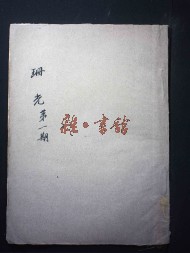 珊光第一期
雜·書館